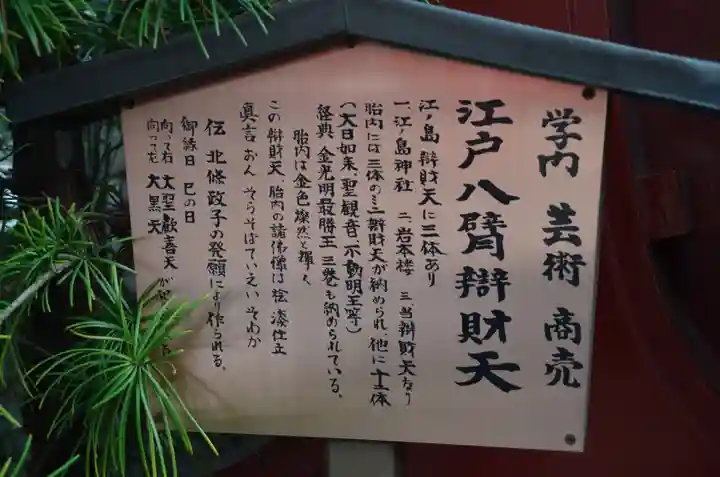 学門 芸術 商売
江戸八臂辯財天
江ノ島辯財天に三体あり
一、江ノ島神社 二、岩本楼 三、当辯財天なり
胎内には三体のミニ辯財天が納められ、他に十二体
(大日如来、聖観音、不動明王等)
経典 金光明最勝王 三巻も納められている。
胎内は金色燦然と輝く
この辯財天、胎内の諸佛像は総漆仕立
真言 おん そらそばていえい そわか
伝 北條政子の発願により作られる。
御縁日 巳の日
向って右 大聖歓喜天が
向って左 大黒天